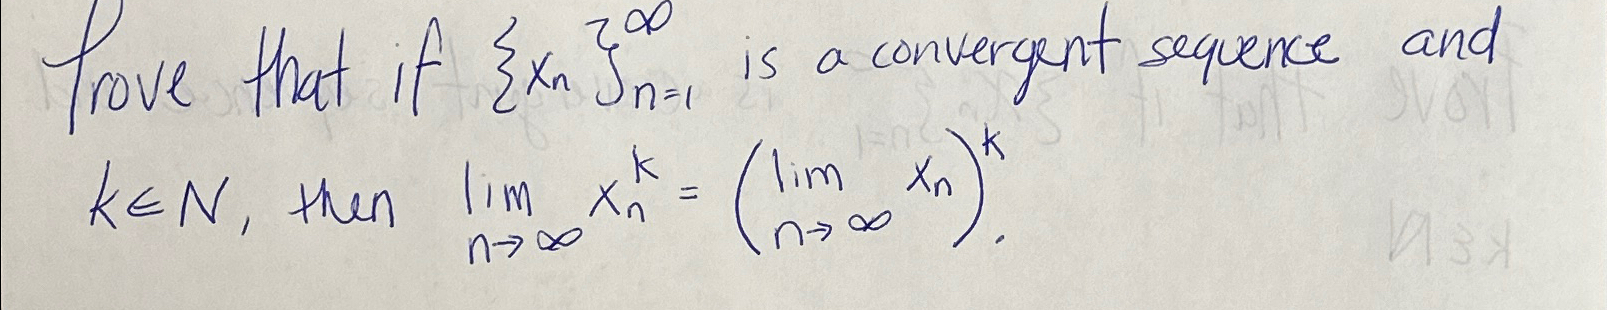 Prove that if {xₙ}ₙ₌₁^∞ is a convergent sequence and
k∈N, then lim_{n→∞} xₙᵏ = (lim_{n→∞} xₙ)ᵏ.